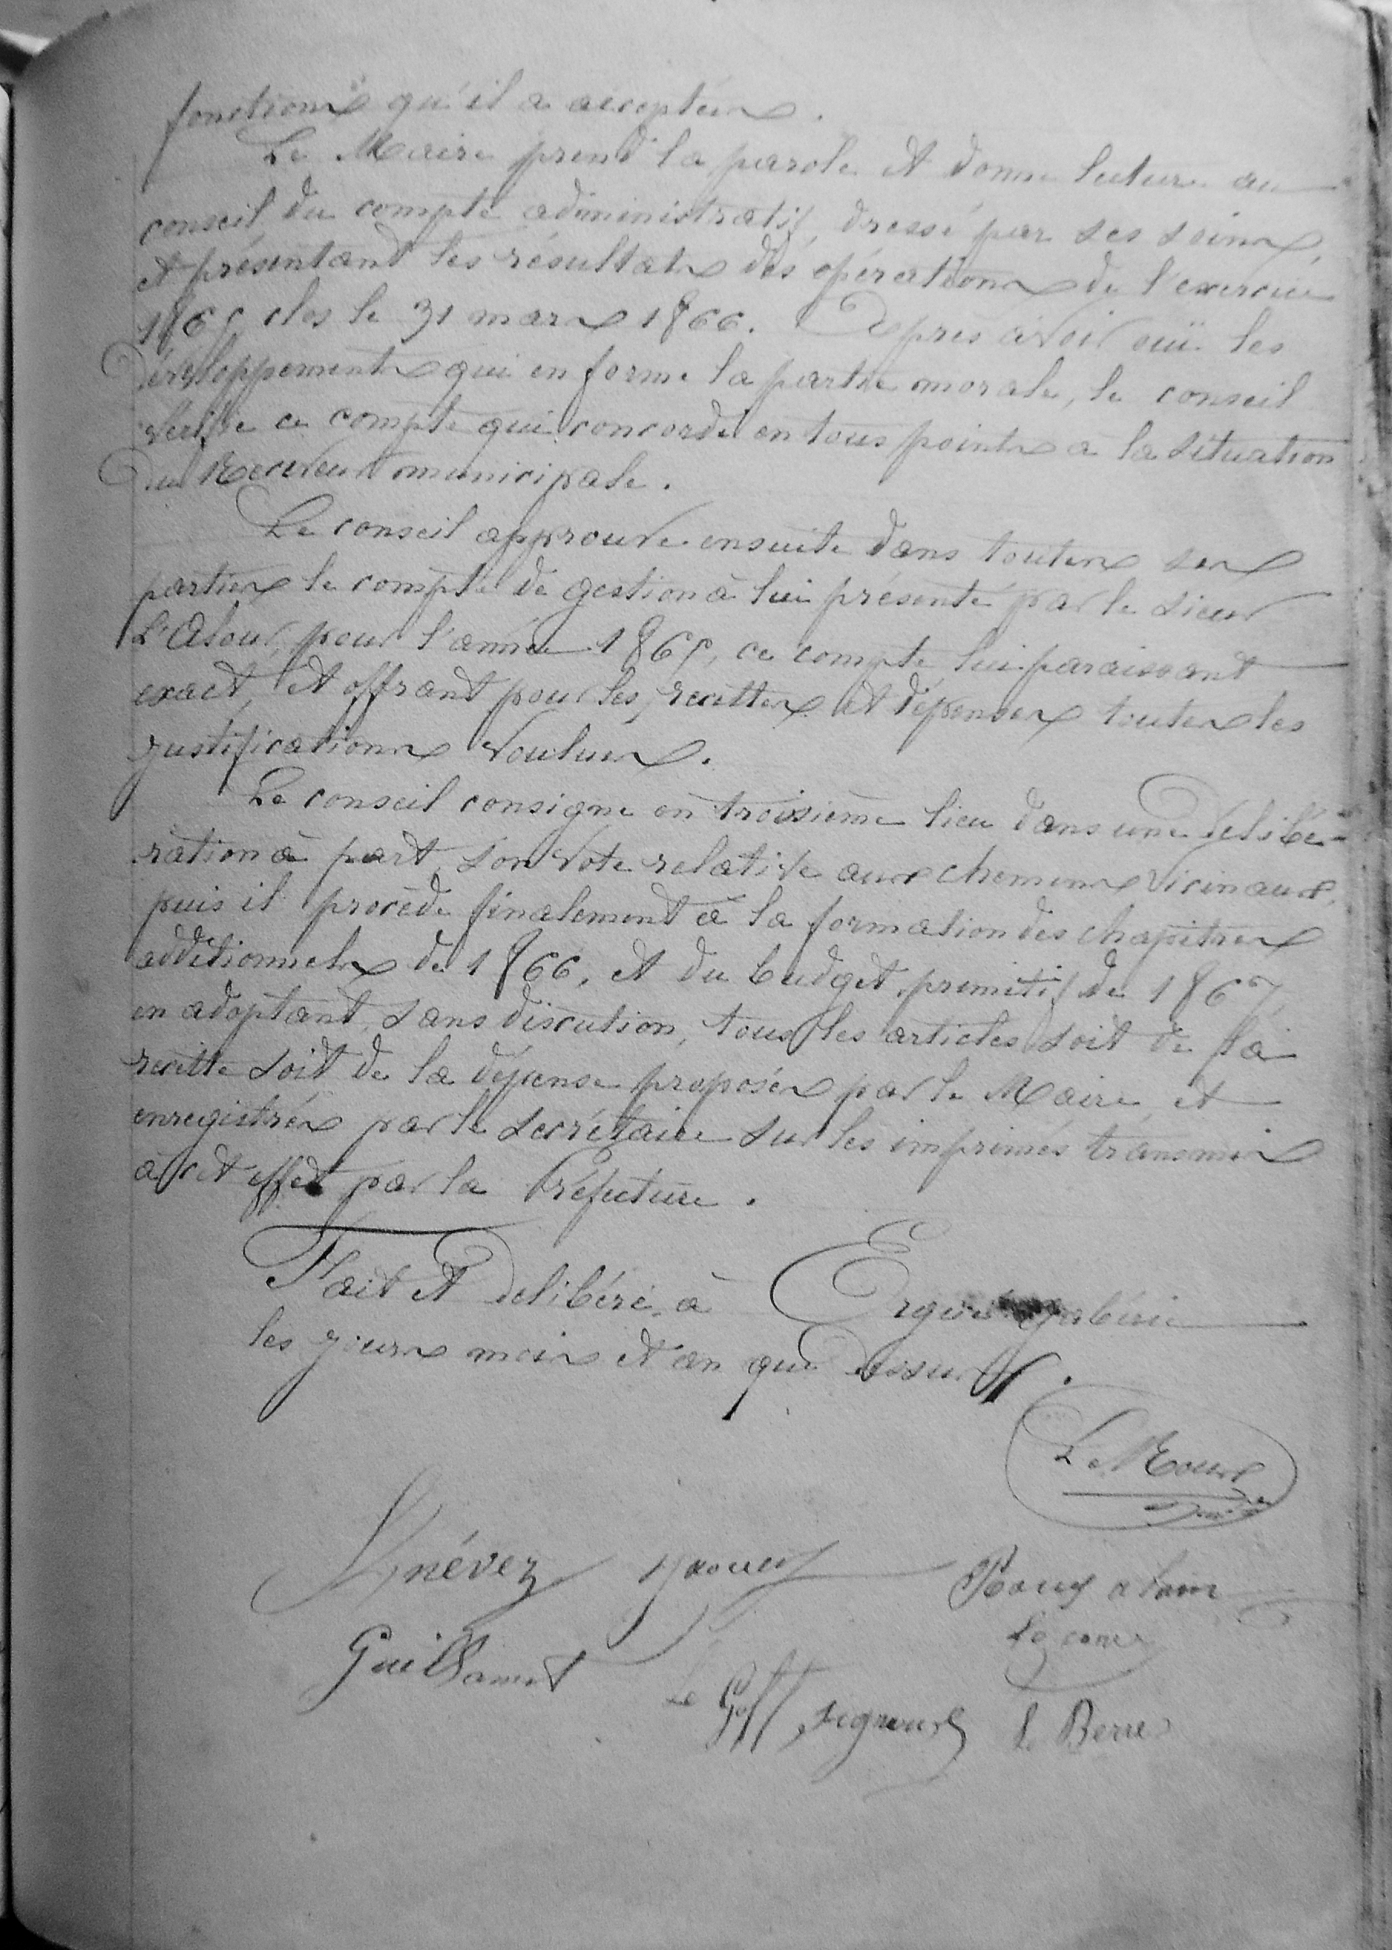 fonctions qu'il a acceptées.
Le Maire prend la parole et donne lecture au
conseil du compte administratif, dressé par ses soins,
et présentant les résultats des opérations de l'exercice
1865 clos le 31 mars 1866. Après avoir ouï les
développements qui en forme la partie morale, le conseil
vérifie ce compte qui concorde en tous points à la situation
du Receveur municipale.
Le conseil approuve ensuite dans toutes ses
parties le compte de gestion à lui présenté par le sieur
L'Alour, pour l'année 1865, ce compte lui paraissant
exact, et offrant pour les recettes et dépenses toutes les
justifications voulues.
Le conseil consigne en troisième lieu dans une délibé-
ration à part son vote relative aux chemins vicinaux,
puis il procède finalement à la formation des chapitres
additionnels de 1866, et du budget primitif de 1867,
en adoptant, sans discution, tous les articles soit de la
recette soit de la dépense proposés par le Maire, et
enregistrés par le secrétaire sur les imprimés transmis
à cet effet par la Préfecture.
Fait et délibéré à Ergué-Gabéric
les jours mois et an que dessus.
Le Roux
Gnévez
Rouz alain
Guillamet
Le Goff
Le Berre